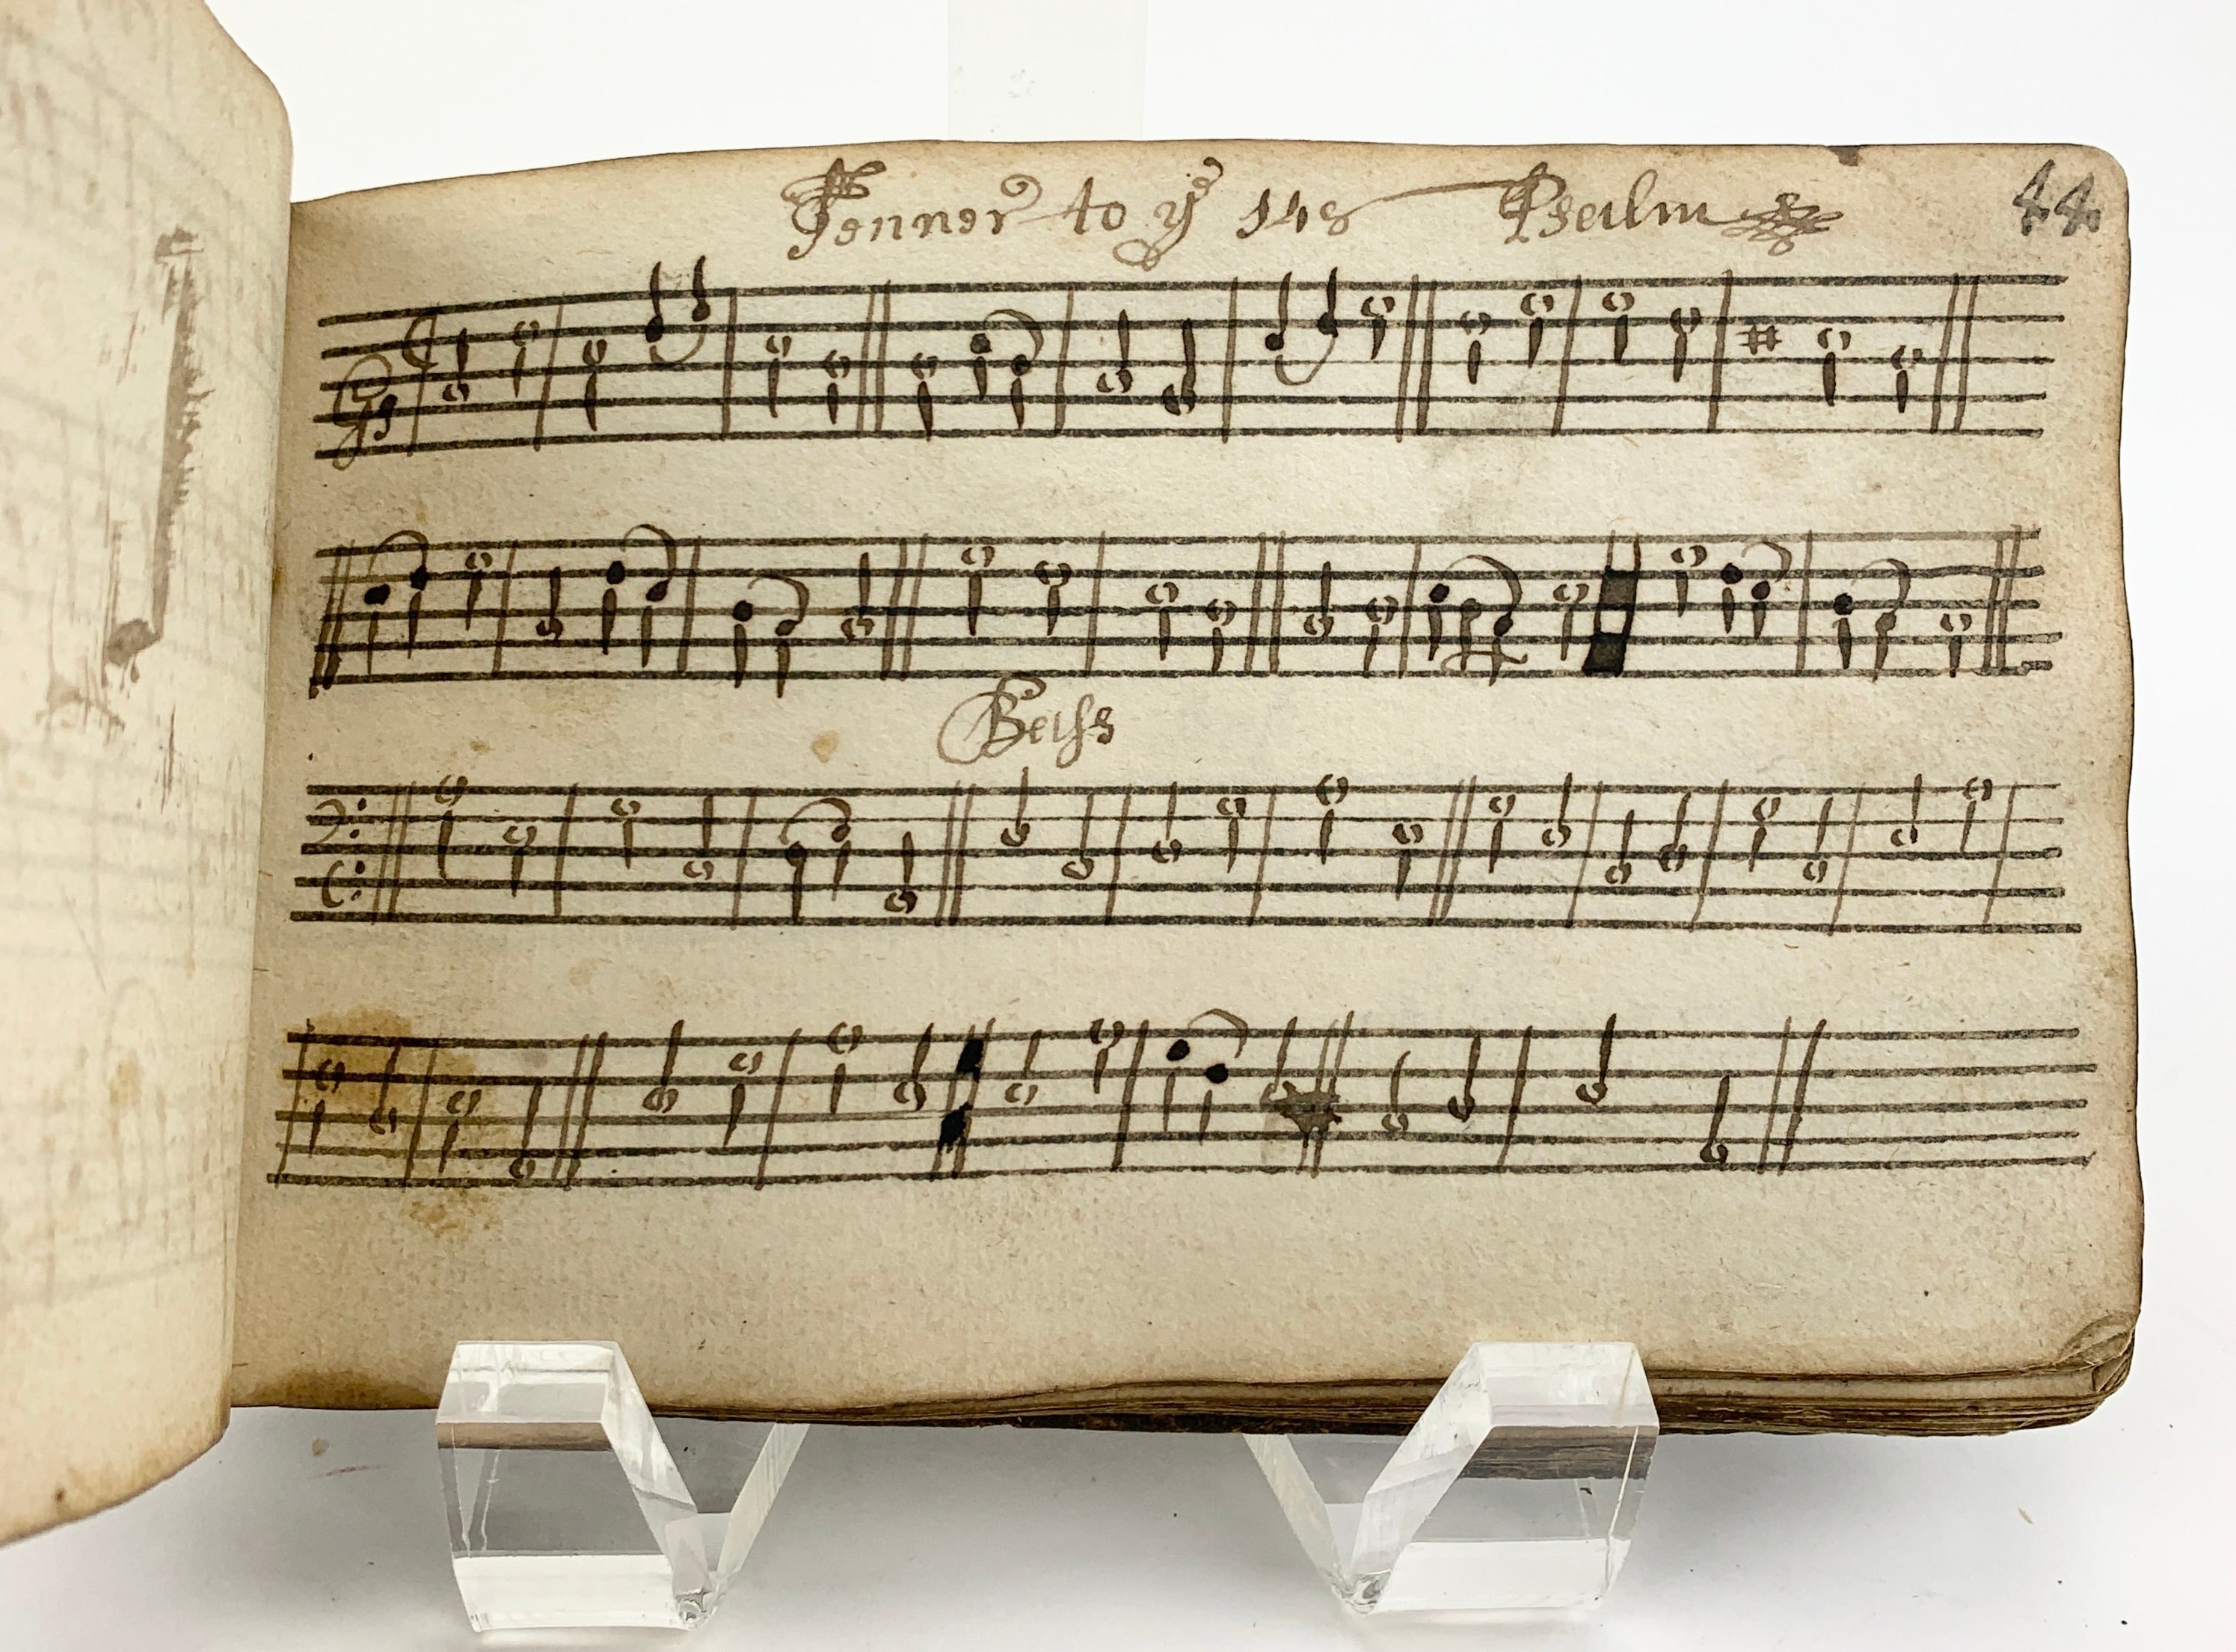 Tenner to yͤ 148 Psalm 44
Bass